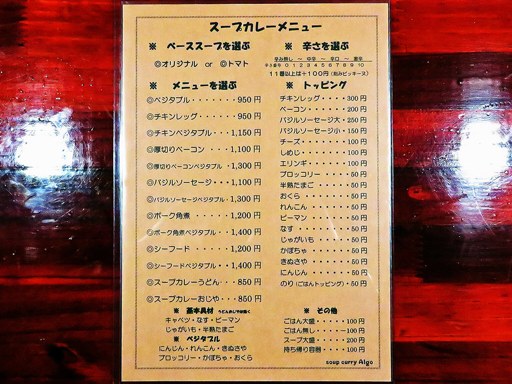 スープカレーメニュー
※ ベーススープを選ぶ
◎オリジナル or ◎トマト
※ 辛さを選ぶ
辛み無し ～ 中辛 ～ 辛口 ～ 激辛
辛さ番号 0 1 2 3 4 5 6 7 8 9 10
11番以上は＋100円（刻みピッキーヌ）
※ メニューを選ぶ
◎ベジタブル・・・・・・・950円
◎チキンレッグ・・・・・・950円
◎チキンベジタブル・・・1,150円
◎厚切りベーコン・・・・1,100円
◎厚切りベーコンベジタブル・1,300円
◎バジルソーセージ・・・1,100円
◎バジルソーセージベジタブル・1,300円
◎ポーク角煮・・・・・・1,200円
◎ポーク角煮ベジタブル・1,400円
◎シーフード・・・・1,200円
◎シーフードベジタブル・・1,400円
◎スープカレーうどん・・・850円
◎スープカレーおじや・・・850円
※ 基本具材 うどんおじやは除く
キャベツ・なす・ピーマン
じゃがいも・半熟たまご
※ ベジタブル
にんじん・れんこん・きぬさや
ブロッコリー・かぼちゃ・おくら
※ トッピング
チキンレッグ・・・・300円
ベーコン・・・・・・200円
バジルソーセージ大・250円
バジルソーセージ小・150円
チーズ・・・・・・・100円
しめじ・・・・・・・100円
エリンギ・・・・・・100円
ブロッコリー・・・・・50円
半熟たまご・・・・・・50円
おくら・・・・・・・・50円
れんこん・・・・・・・50円
ピーマン・・・・・・・50円
なす・・・・・・・・・50円
じゃがいも・・・・・・50円
かぼちゃ・・・・・・・50円
きぬさや・・・・・・・50円
にんじん・・・・・・・50円
のり（ごはんトッピング）・50円
※ その他
ごはん大盛・・・・・100円
ごはん無し・・・・－100円
スープ大盛・・・・・200円
持ち帰り容器・・・・100円
soup curry Algo